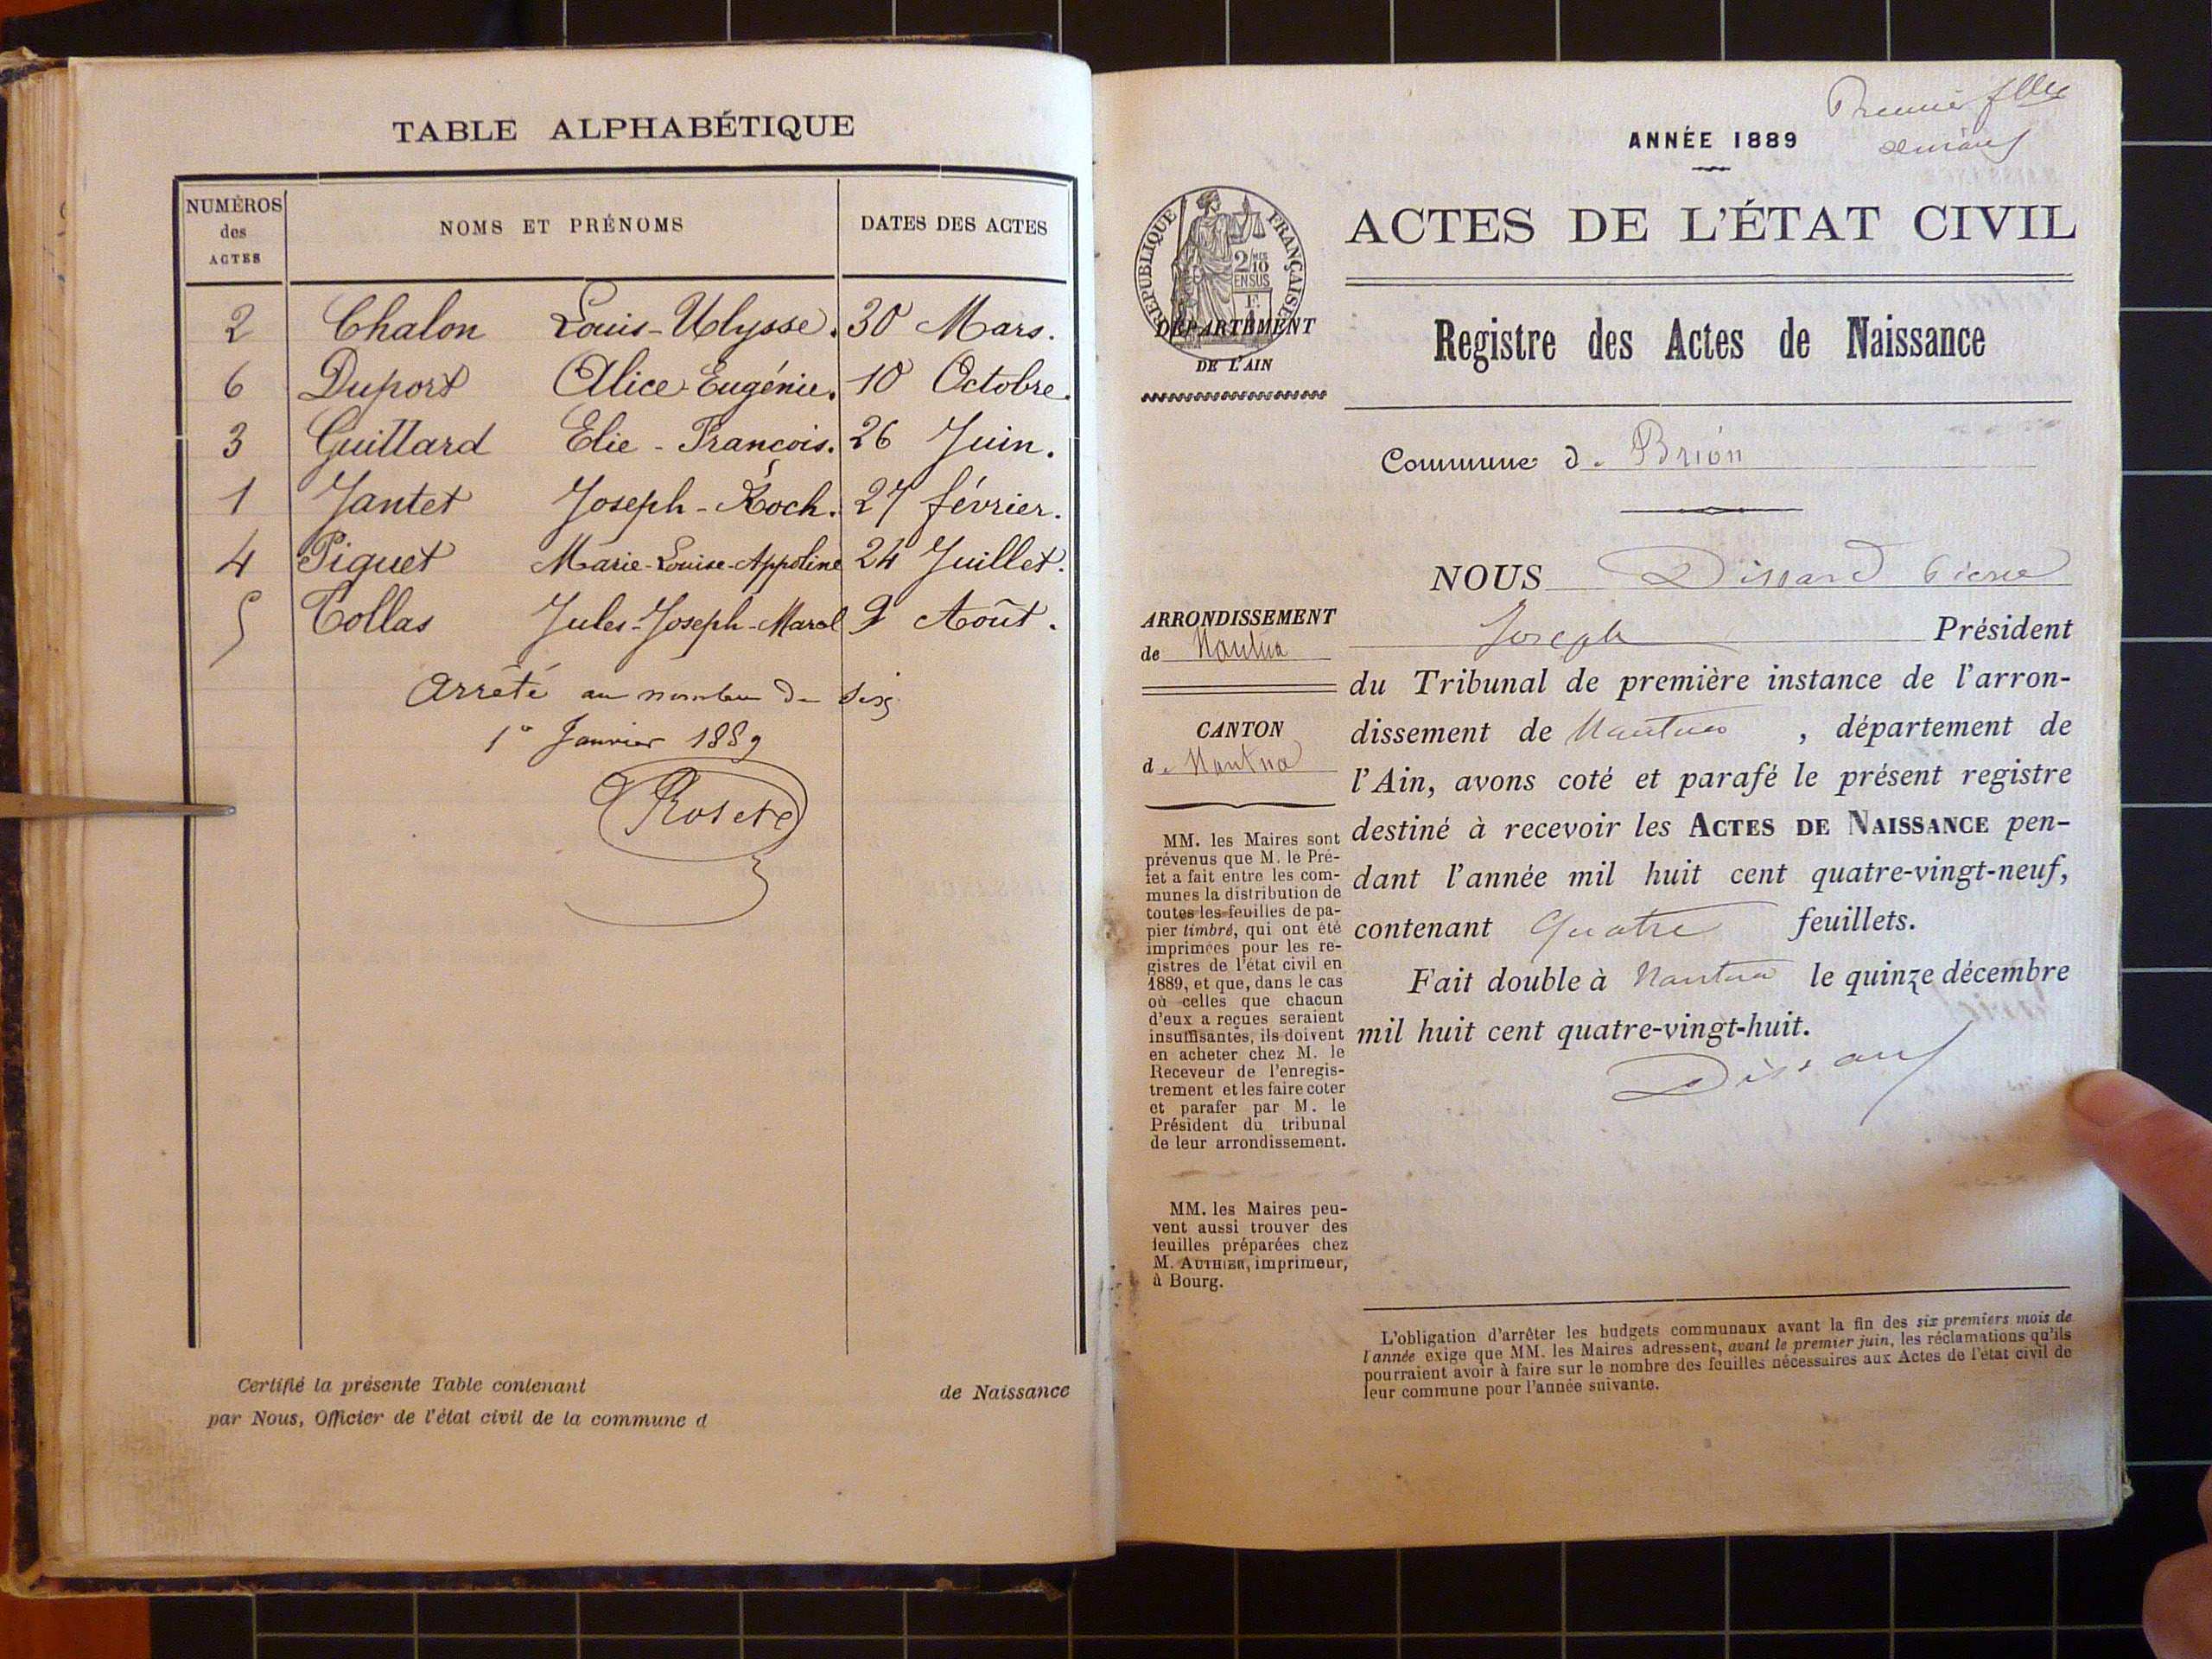 TABLE ALPHABÉTIQUE
NUMÉROS des ACTES
NOMS ET PRÉNOMS
DATES DES ACTES
2 Chalon Louis-Ulysse. 30 Mars.
6 Duport Alice Eugénie. 10 Octobre.
3 Guillard Elie - François. 26 Juin.
1 Jantet Joseph - Roch. 27 février.
4 Piguet Marie-Louise-Appoline 24 Juillet.
5 Tollas Jules-Joseph-Marcel 9 Août.
Arrêté au nombre de six
1er Janvier 1889
Certifié la présente Table contenant de Naissance
par Nous, Officier de l'état civil de la commune d
ANNÉE 1889
RÉPUBLIQUE FRANÇAISE
2/10
EN SUS
DÉPARTEMENT
DE L'AIN
ARRONDISSEMENT
de Nantua
CANTON
de Nantua
MM. les Maires sont
prévenus que M. le Pré-
fet a fait entre les com-
munes la distribution de
toutes les feuilles de pa-
pier timbré, qui ont été
imprimées pour les re-
gistres de l'état civil en
1889, et que, dans le cas
où celles que chacun
d'eux a reçues seraient
insuffisantes, ils doivent
en acheter chez M. le
Receveur de l'enregis-
trement et les faire coter
et parafer par M. le
Président du tribunal
de leur arrondissement.
MM. les Maires peu-
vent aussi trouver des
feuilles préparées chez
M. AUTHIER, imprimeur,
à Bourg.
ACTES DE L'ÉTAT CIVIL
Registre des Actes de Naissance
Commune de Brion
NOUS Dissard Pierre
Joseph Président
du Tribunal de première instance de l'arron-
dissement de Nantua , département de
l'Ain, avons coté et parafé le présent registre
destiné à recevoir les ACTES DE NAISSANCE pen-
dant l'année mil huit cent quatre-vingt-neuf,
contenant Quatre feuillets.
Fait double à Nantua le quinze décembre
mil huit cent quatre-vingt-huit.
Dissard
L'obligation d'arrêter les budgets communaux avant la fin des six premiers mois de
l'année exige que MM. les Maires adressent, avant le premier juin, les réclamations qu'ils
pourraient avoir à faire sur le nombre des feuilles nécessaires aux Actes de l'état civil de
leur commune pour l'année suivante.